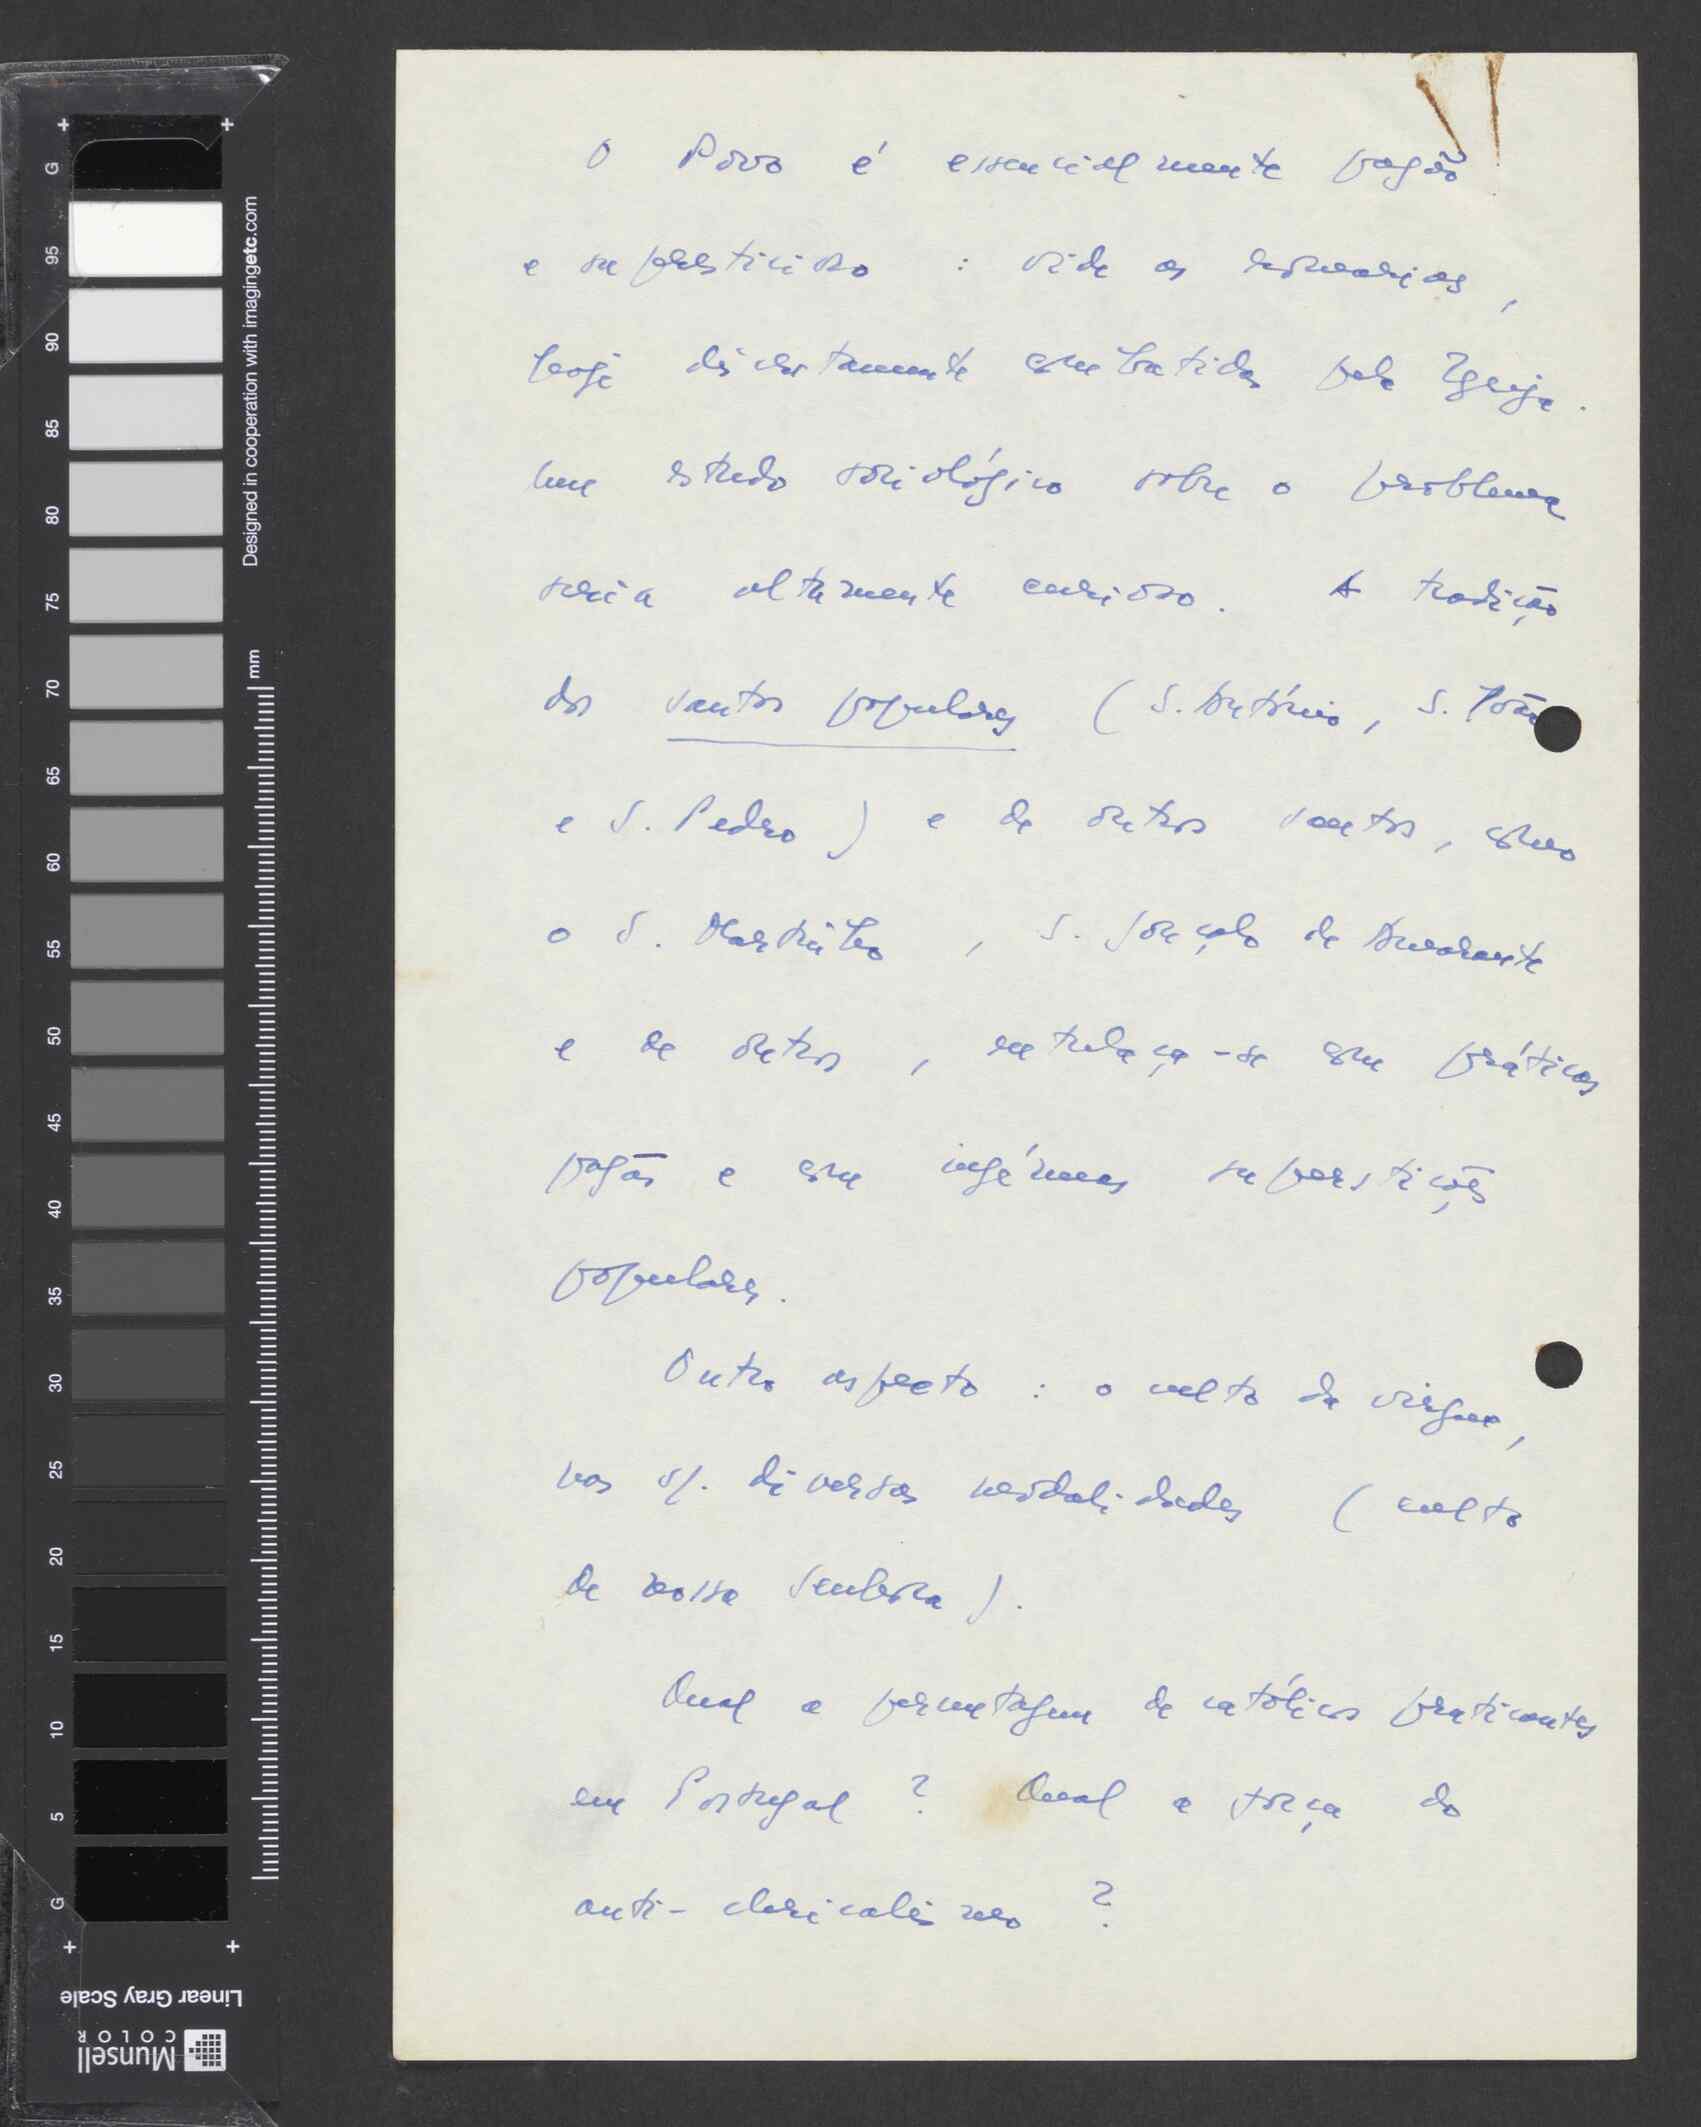 O Povo é essencialmente pagão
e supersticioso : vide as romarias,
hoje discretamente combatidas pela Igreja.
Um estudo sociológico sobre o problema
seria altamente curioso. A tradição
dos santos populares (S. António, S. João
e S. Pedro) e de outros santos, como
o S. Martinho, S. Gonçalo de Amarante
e de outros, entrelaça-se com práticas
pagãs e com ingénuas superstições
populares.
Outro aspecto : o culto da virgem,
nas s/. diversas modalidades (culto
de nossa Senhora).
Qual a percentagem de católicos praticantes
em Portugal ? Qual a força do
anti-clericalismo ?
G 95 90 85 80 75 70 65 60 55 50 45 40 35 30 25 20 15 10 5 G
Designed in cooperation with imagingetc.com
mm
Linear Gray Scale
Munsell
COLOR